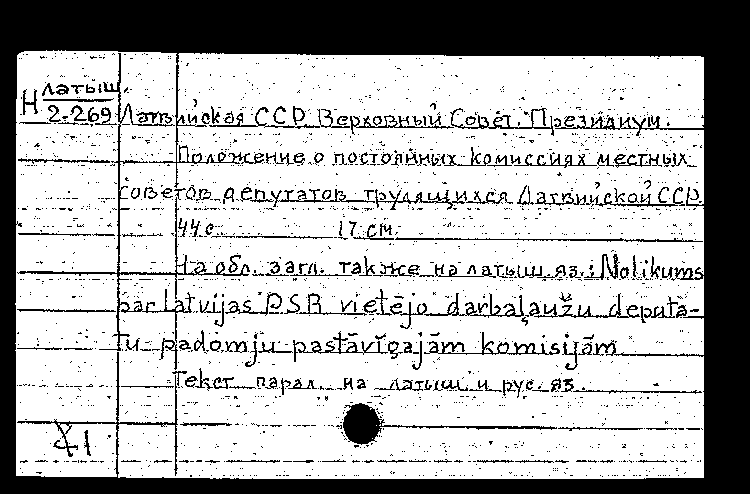 латыш.
Н 2-269 Латвийская ССР. Верховный Совет. Президиум.
Положение о постоянных комиссиях местных
советов депутатов трудящихся Латвийской ССР.
44 с. 17 см.
На обл. загл. также на латыш. яз.: Nolikums
par Latvijas PSR vietējo darbaļaužu deputā-
tu padomju pastāvīgajām komisijām
Текст парал. на латыш. и рус. яз.